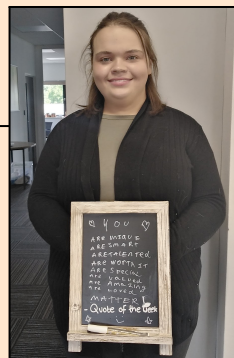 YOU
ARE UNIQUE
ARE SMART
ARE TALENTED
ARE WORTH IT
ARE SPECIAL
are valued
are Amazing
are loved
MATTER!
- Quote of the week